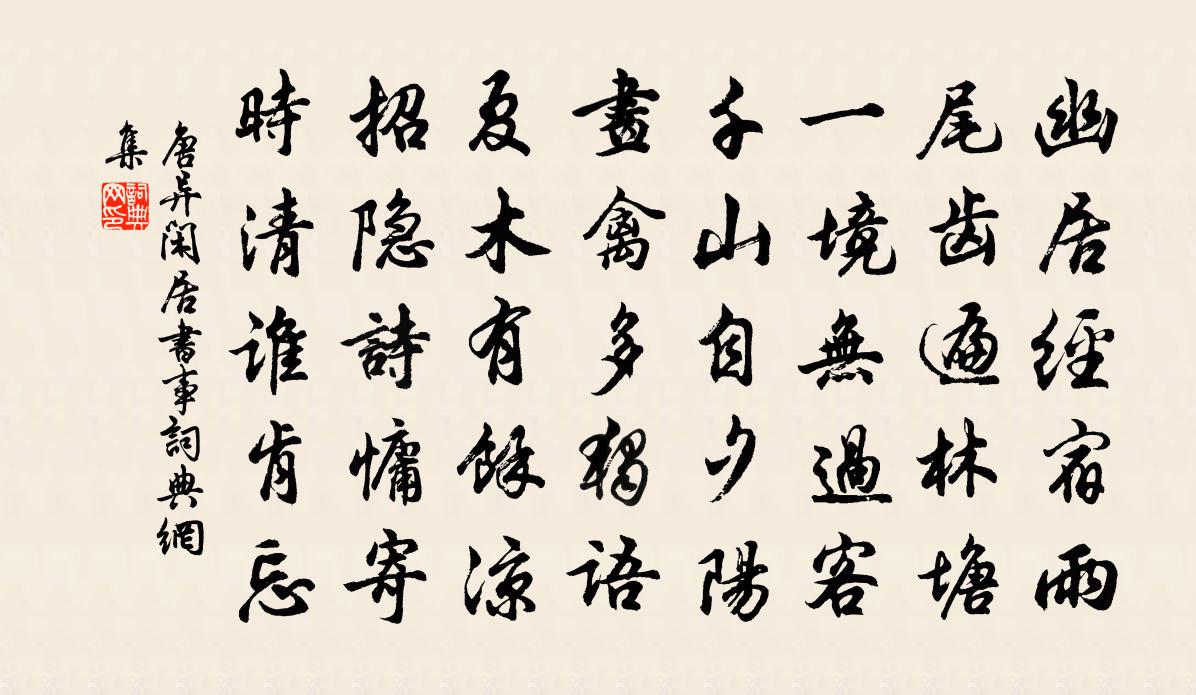 幽居經宿雨
尾齿遍林塘
一境無過客
千山自夕陽
晝禽多獨語
夏木有餘凉
招隐詩慵寄
時清誰肯忘
唐异閑居書事詞典網
集
詞典
网印